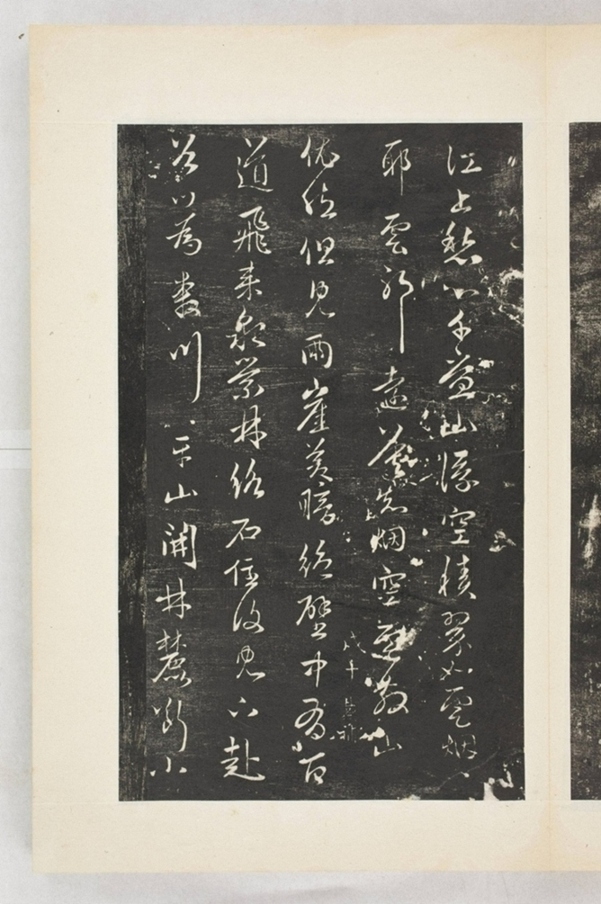 江上愁心千疊山浮空積翠如雲烟
耶雲耶遠莫知烟空雲散山
依然但見兩崖蒼暗絕壁中有百
道飛來泉縈林絡石隱復見下赴
谷口為奔川〻平山開林麓斷小